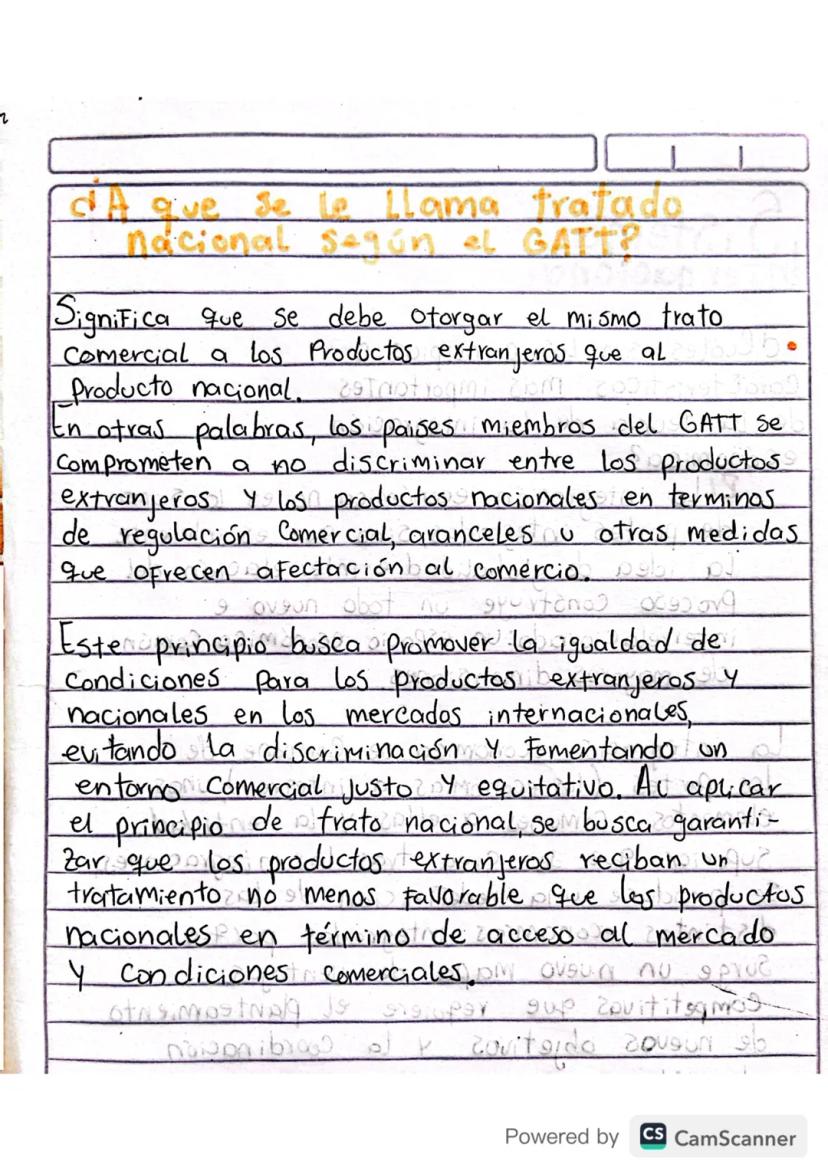 ¿A que se le llama tratado
nacional según el GATT?
Significa que se debe otorgar el mismo trato
comercial a los Productos extranjeros que al
Producto nacional.
En otras palabras, los paises miembros del GATT se
comprometen a no discriminar entre los productos
extranjeros y los productos nacionales en terminos
de regulación Comercial, aranceles u otras medidas
que ofrecen afectación al comercio.
Este principio busca promover la igualdad de
condiciones para los productos extranjeros y
nacionales en los mercados internacionales,
evitando la discriminación y fomentando un
entorno comercial justo y equitativo. Al aplicar
el principio de trato nacional, se busca garanti-
zar que los productos extranjeros reciban un
tratamiento no menos favorable que los productos
nacionales en término de acceso al mercado
y condiciones comerciales.
Powered by CS CamScanner